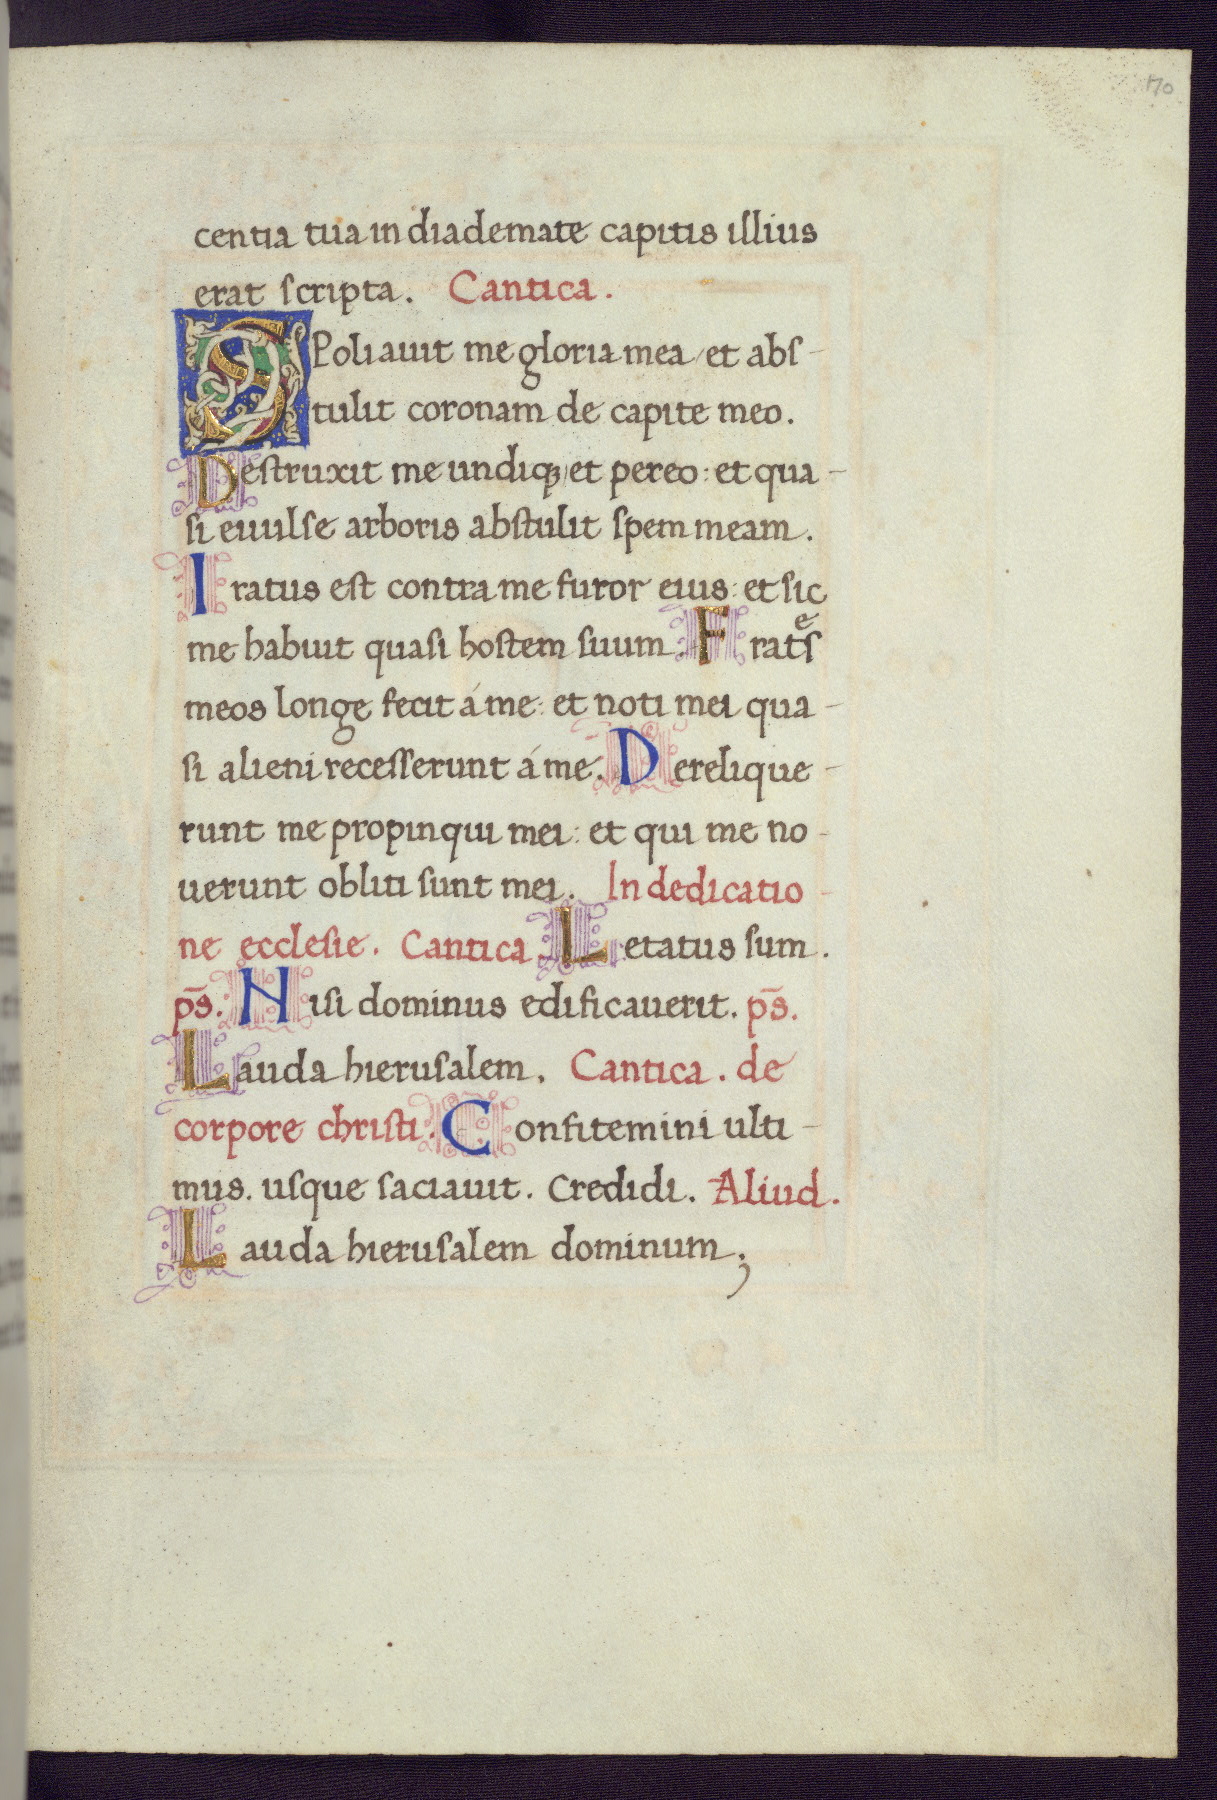 170
centia tua in diademate capitis illius
erat scripta. Cantica.
SPoliauit me gloria mea / et abs-
tulit coronam de capite meo.
Destruxit me undiqꝫ / et pereo: et qua-
si euulse arboris abstulit spem meam.
Iratus est contra me furor eius: et sic
me habuit quasi hostem suum. Frates
meos longe fecit á me: et noti mei qua-
si alieni recesserunt á me. Derelique-
runt me propinqui mei: et qui me no-
uerunt obliti sunt mei. In dedicatio-
ne ecclesie. Cantica. Letatus sum.
ps̄. Nisi dominus edificauerit. ps̄.
Lauda hierusalem. Cantica. de
corpore christi. Confitemini ulti-
mus. usque saciauit. Credidi. Aliud.
Lauda hierusalem dominum;